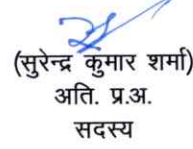 (सुरेन्द्र कुमार शर्मा)
अति. प्र.अ.
सदस्य